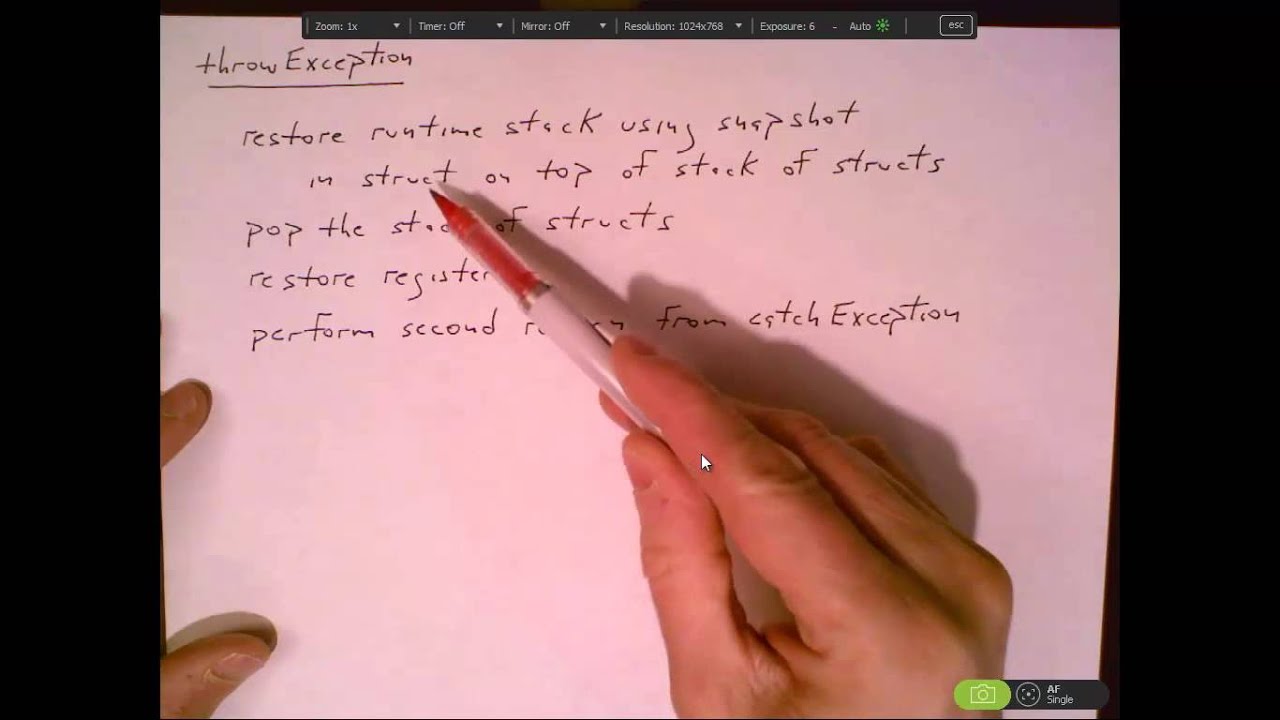 Zoom: 1x Timer: Off Mirror: Off Resolution: 1024x768 Exposure: 6 - Auto esc
throwException
restore runtime stack using snapshot
in struct on top of stack of structs
pop the of structs
restore register
perform second from catchException
AF
Single